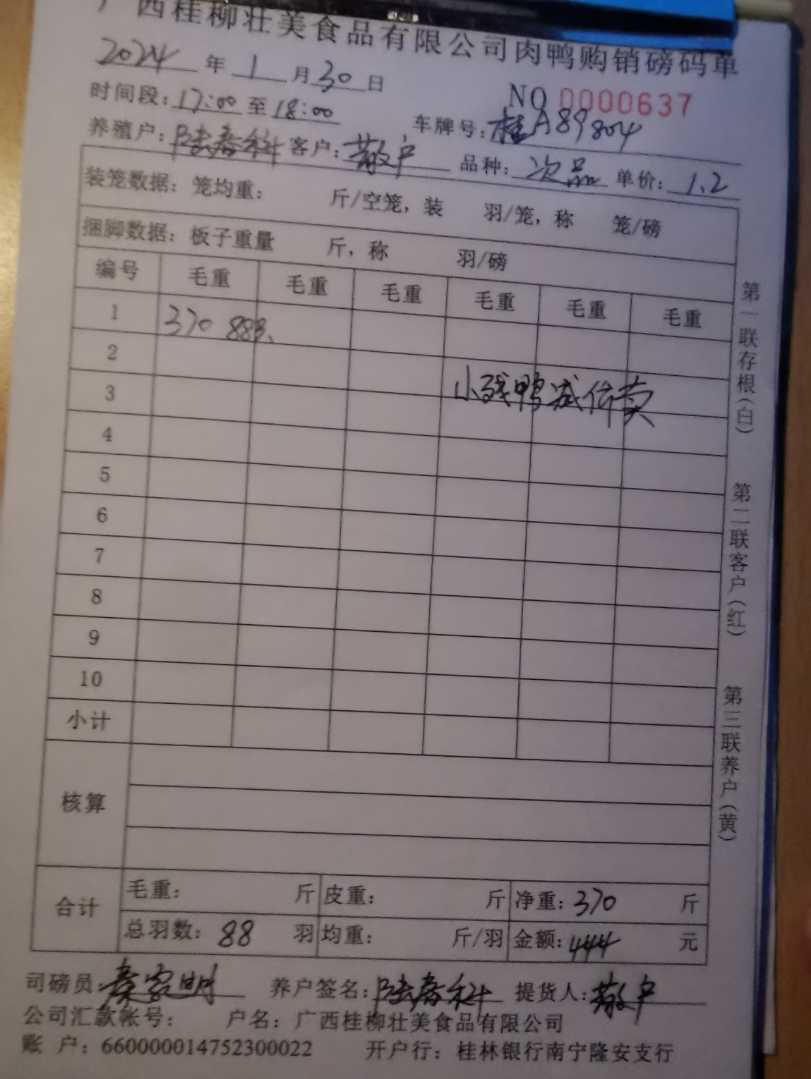 广西桂柳壮美食品有限公司肉鸭购销磅码单
2024年1月30日
NO 0000637
时间段:17:00至18:00
车牌号:桂A89804
养殖户:陆春科 客户:散户 品种:次品 单价:1.2
装笼数据:笼均重: 斤/空笼,装 羽/笼,称 笼/磅
捆脚数据:板子重量 斤,称 羽/磅
编号 毛重 毛重 毛重 毛重 毛重 毛重
1 370 88只
2
3 小残鸭减价卖
4
5
6
7
8
9
10
小计
核算
合计 毛重: 斤 皮重: 斤 净重:370 斤
总羽数:88 羽 均重: 斤/羽 金额:444 元
司磅员:秦家明 养户签名:陆春科 提货人:散户
公司汇款帐号: 户名:广西桂柳壮美食品有限公司
账 户:660000014752300022 开户行:桂林银行南宁隆安支行
第一联存根(白)
第二联客户(红)
第三联养户(黄)